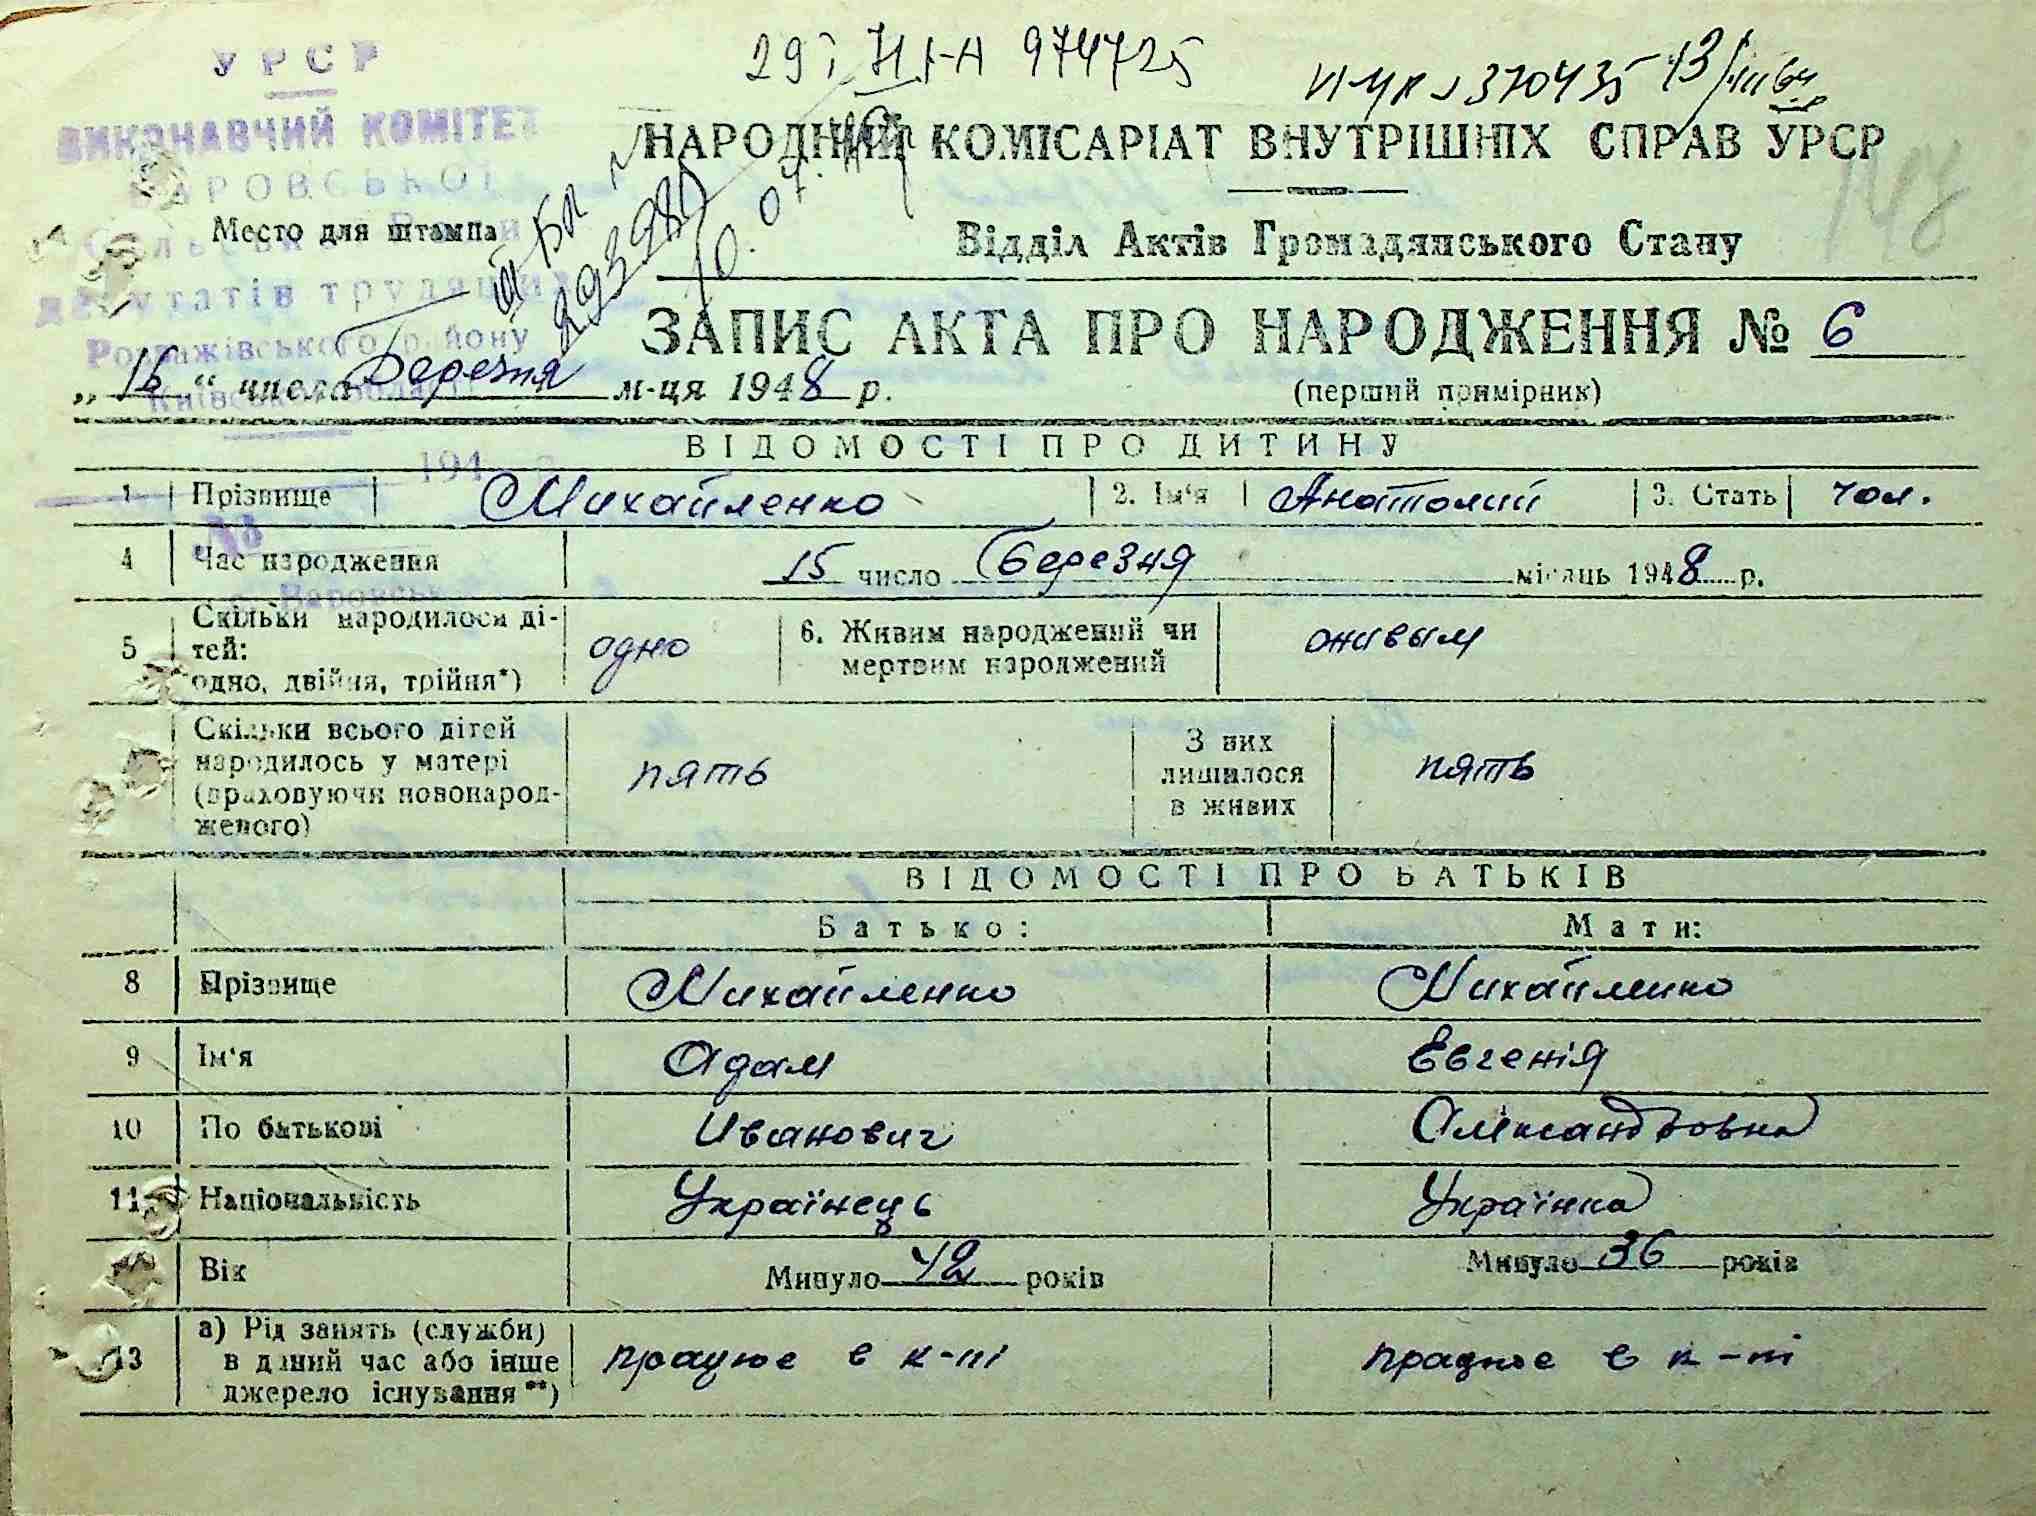 УРСР
ВИКОНАВЧИЙ КОМІТЕТ
ВАРОВСЬКОЇ
Сільської Ради
депутатів трудящих
Розважівського району
Київської області
194
№
Варовськ
29 974725
370435 13/III 64
НАРОДНИЙ КОМІСАРІАТ ВНУТРІШНІХ СПРАВ УРСР
Место для штампа
Відділ Актів Громадянського Стану
293980
10.07.
ЗАПИС АКТА ПРО НАРОДЖЕННЯ № 6
„16" числа Березня м-ця 1948 р.
(перший примірник)
ВІДОМОСТІ ПРО ДИТИНУ
1 Прізвище Михайленко 2. Ім'я Анатолий 3. Стать чол.
4 Час народження 15 число Березня місяць 1948 р.
5 Скільки народилося дітей: одно, двійня, трійня*) одно 6. Живим народжений чи мертвим народжений живым
Скільки всього дітей народилось у матері (враховуючи новонародженого) пять З них лишилося в живих пять
ВІДОМОСТІ ПРО БАТЬКІВ
Батько: Мати:
8 Прізвище Михайленко Михайленко
9 Ім'я Адам Евгенія
10 По батькові Иванович Олександровна
11 Національність Українець Українка
Вік Минуло 42 років Минуло 36 років
13 а) Рід занять (служби) в даний час або інше джерело існування**) працює в к-пі працює в к-пі